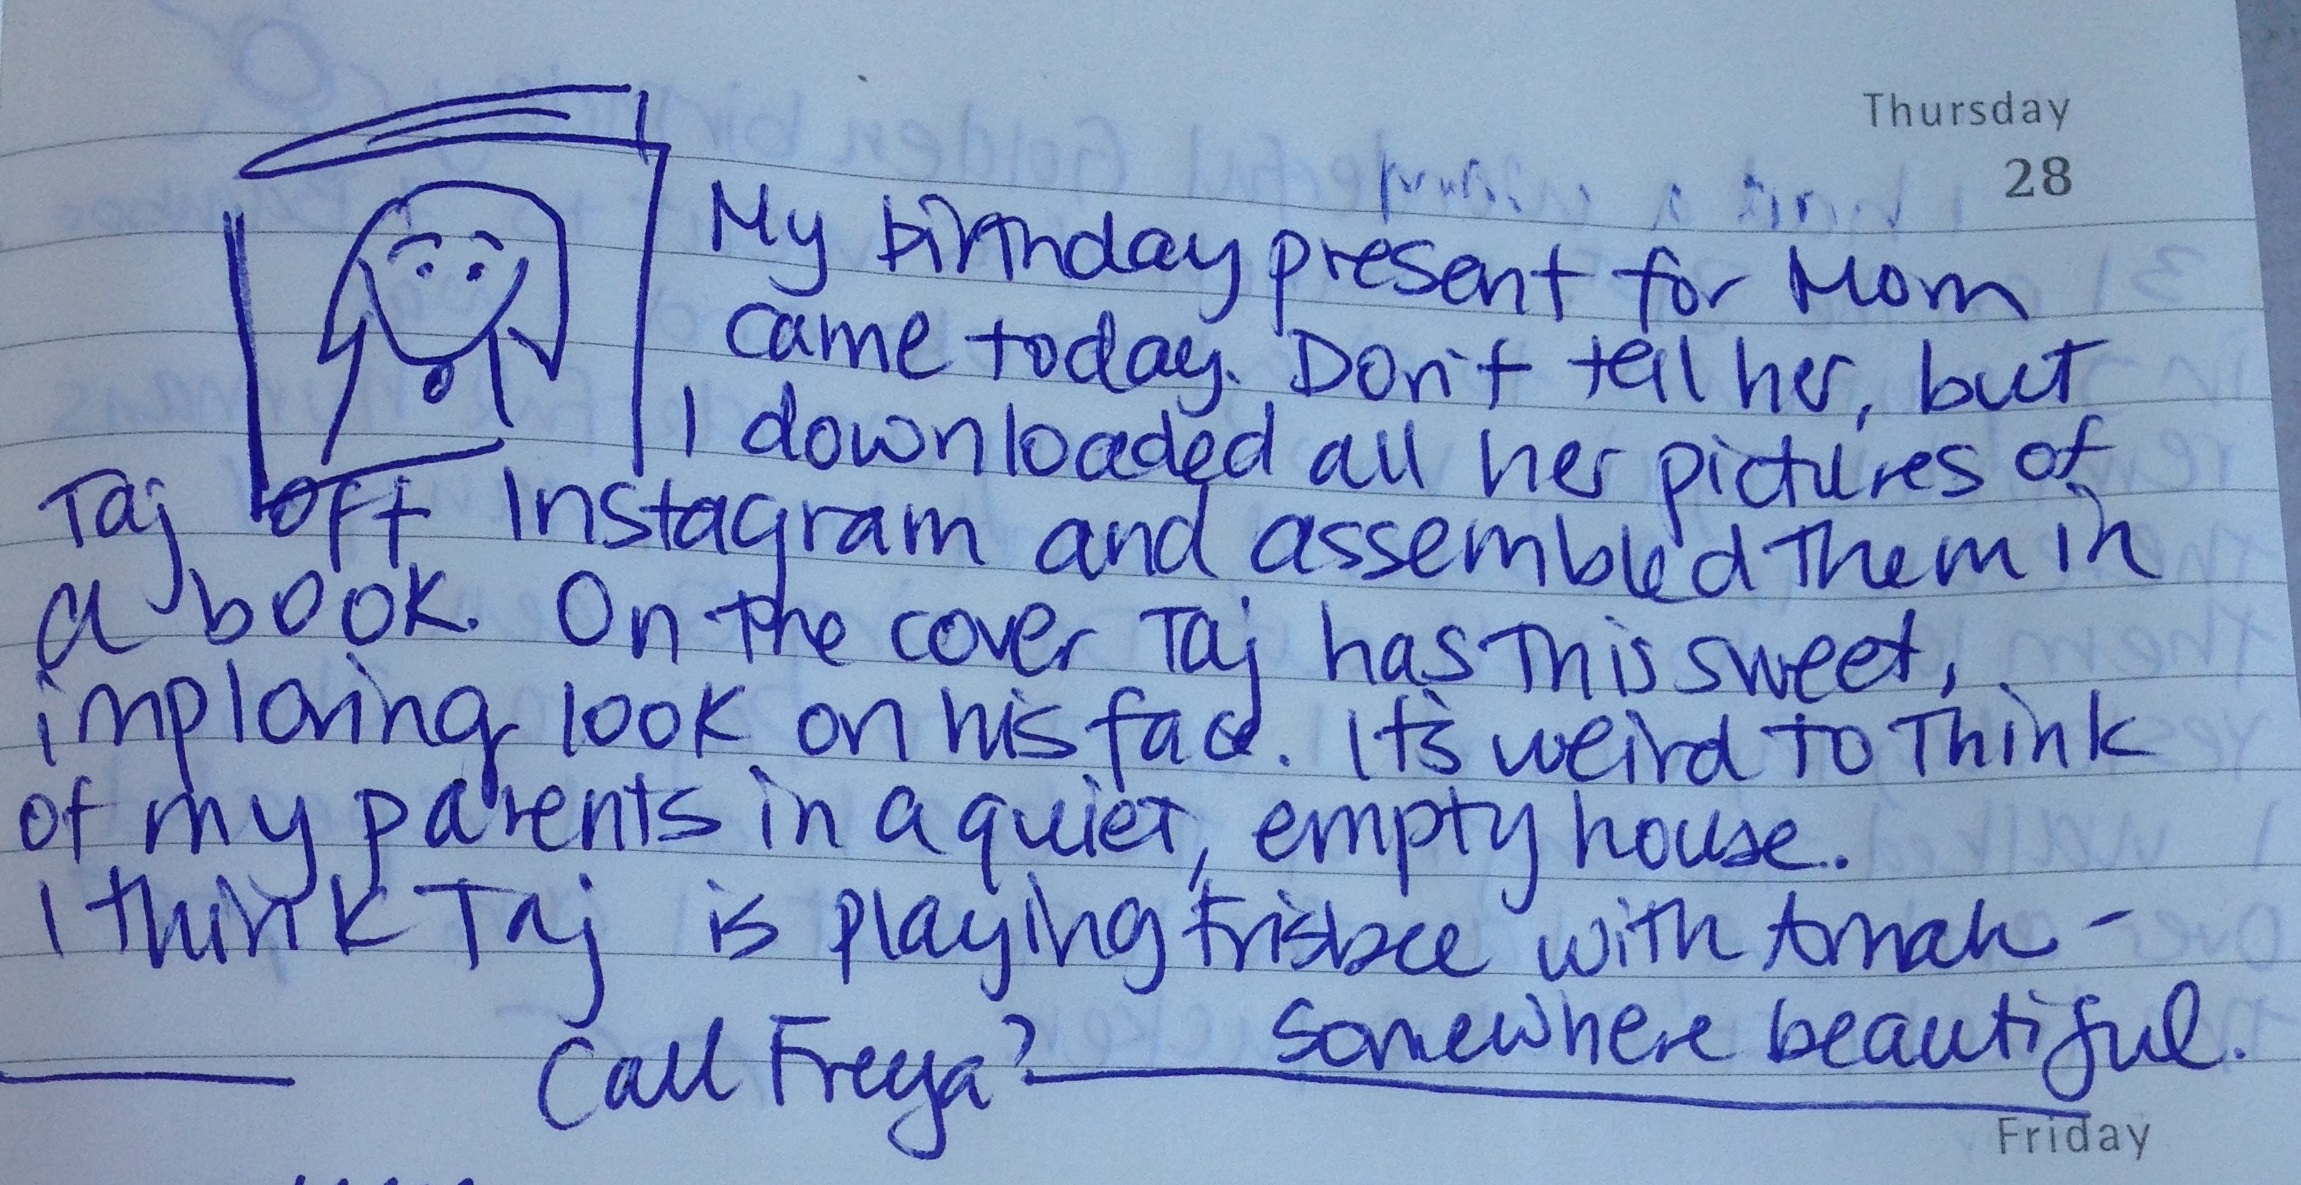 Thursday
28
My birthday present for Mom
came today. Don't tell her, but
I downloaded all her pictures of
Taj off Instagram and assembled them in
a book. On the cover Taj has this sweet,
imploring look on his face. It's weird to think
of my parents in a quiet, empty house.
I think Taj is playing frisbee with Amah -
somewhere beautiful.
Call Freya?
Friday